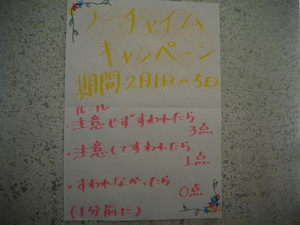 ノーチャイム
キャンペーン
期間2月1日～5日
ルール
・注意せずすわれたら
3点
・注意してすわれたら
1点
・すわれなかったら
0点
(1分前に)